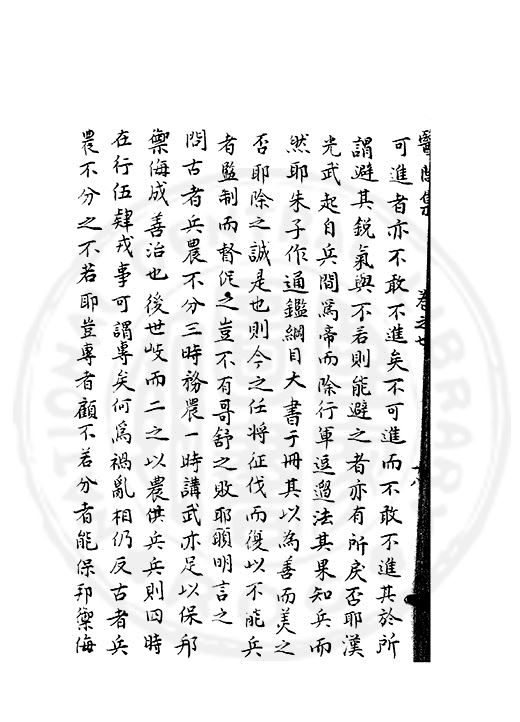 醫閭集 卷之七 十八
可進者亦不敢不進矣不可進而不敢不進其於所
謂避其銳氣與不若則能避之者亦有所戾否耶漢
光武起自兵間為帝而除行軍逗遛法其果知兵而
然耶朱子作通鑑綱目大書于冊其以為善而美之
否耶除之誠是也則今之任將征伐而復以不能兵
者監制而督促之豈不有哥舒之敗耶願明言之
問古者兵農不分三時務農一時講武亦足以保邦
禦侮成善治也後世岐而二之以農供兵兵則四時
在行伍肄戎事可謂專矣何為禍亂相仍反古者兵
農不分之不若耶豈專者顧不若分者能保邦禦侮